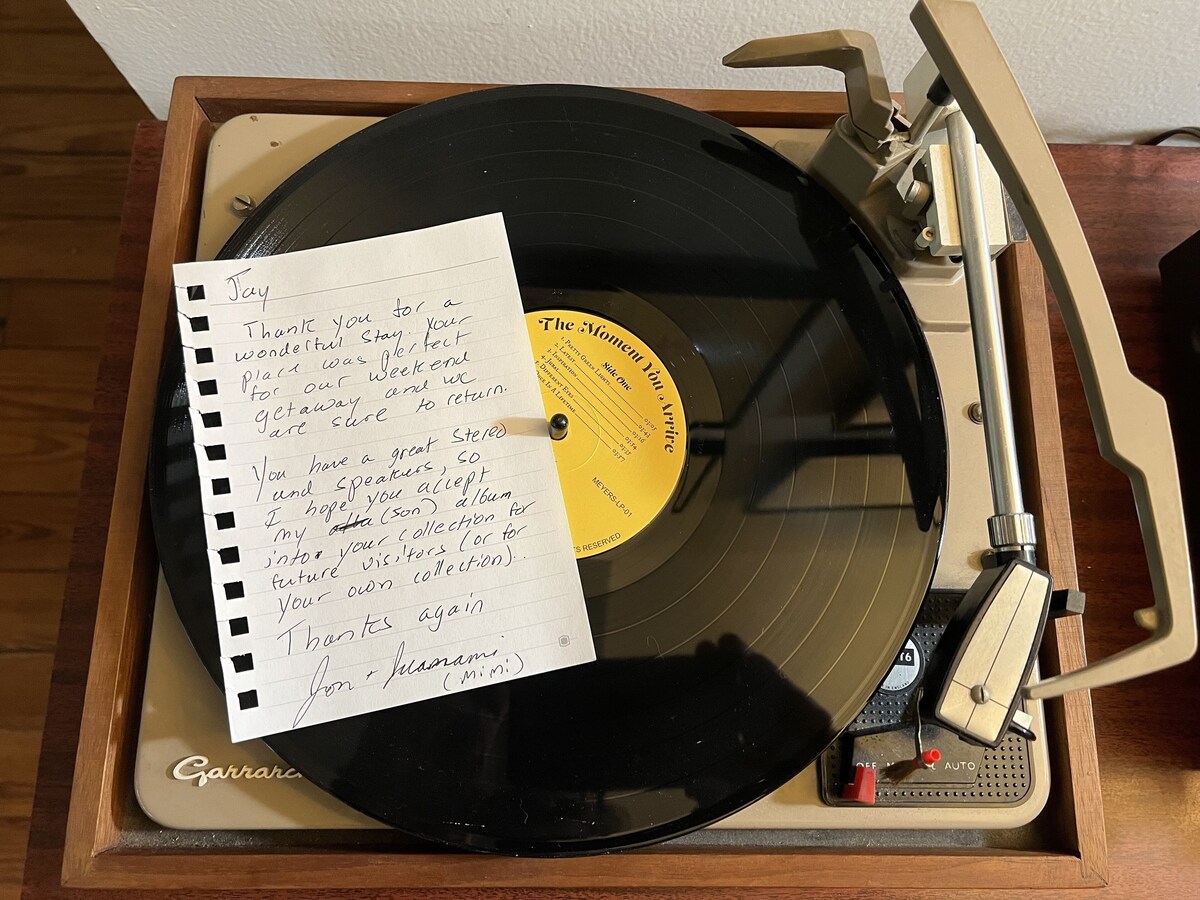 Jay
Thank you for a
wonderful stay. Your
place was perfect
for our weekend
getaway and we
are sure to return.
You have a great stereo
and speakers, so
I hope you accept
my (son) album
into your collection for
future visitors (or for
your own collection)..
Thanks again
Jon +
(Mimi)
The Moment You Arrive
Side One
1. Pretty Green Lights
2. Latest
3. Inspiration
4. Jubal
5. Different Eyes
In A Lifetime
MEYERS-LP-01
S RESERVED
Garrard
T6
OFF
AUTO